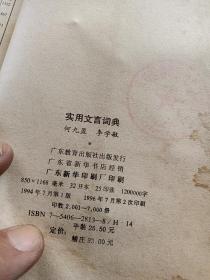 实用文言词典
何九盈 李学敏
*
广东教育出版社出版发行
广东省新华书店经销
广东新华印刷厂印刷
850×1168 毫米 32开本 25印张 1200000字
1994年7月第1版 1996年7月第2次印刷
印数2,001—7,000册
ISBN 7—5406—2813—8/H·14
定价: 平装 26.50元
精装 35.00元